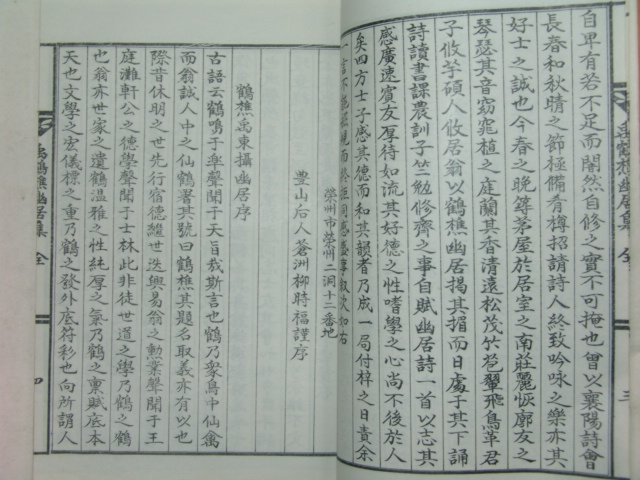 禹鶴樵幽居集 全 三
自卑有若不足而闇然自修之實不可掩也曾以襄陽詩會
長春和秋晴之節極備肴樽招請詩人終致吟咏之樂亦其
好士之誠也今春之晚築茅屋於居室之南莊麗恢廓友之
琴瑟其音窈窕植之庭蘭其香清遠松茂竹苞翬飛鳥革君
子攸芋碩人攸居翁以鶴樵幽居揭其楣而日處于其下誦
詩讀書課農訓子竺勉修齊之事自賦幽居詩一首以志其
感廣速賓友厚待如流其好德之性嗜學之心尚不後於人
矣四方士子感其德而和其韻者乃成一局付梓之日責余
一言不規而終同感盛事敘次如右
榮州市榮州二洞十二番地
豊山后人蒼洲柳時福謹序
鶴樵禹東攝幽居序
古語云鶴鳴于皐聲聞于天旨哉斯言也鶴乃衆鳥中仙禽
而翁誠人中之仙鶴署其號曰鶴樵其題名取義亦有以也
際昔休明之世先行宿德繼世迭興易翁之勳業聲聞于王
庭灘軒公之德學聲聞于士林此非徒世道之學乃鶴之鶴
也翁亦世家之遺鶴溫雅之性純厚之氣乃鶴之禀賦底本
天也文學之宏儀標之重乃鶴之發外底符彩也向所謂人
禹鶴樵幽居集 全 四